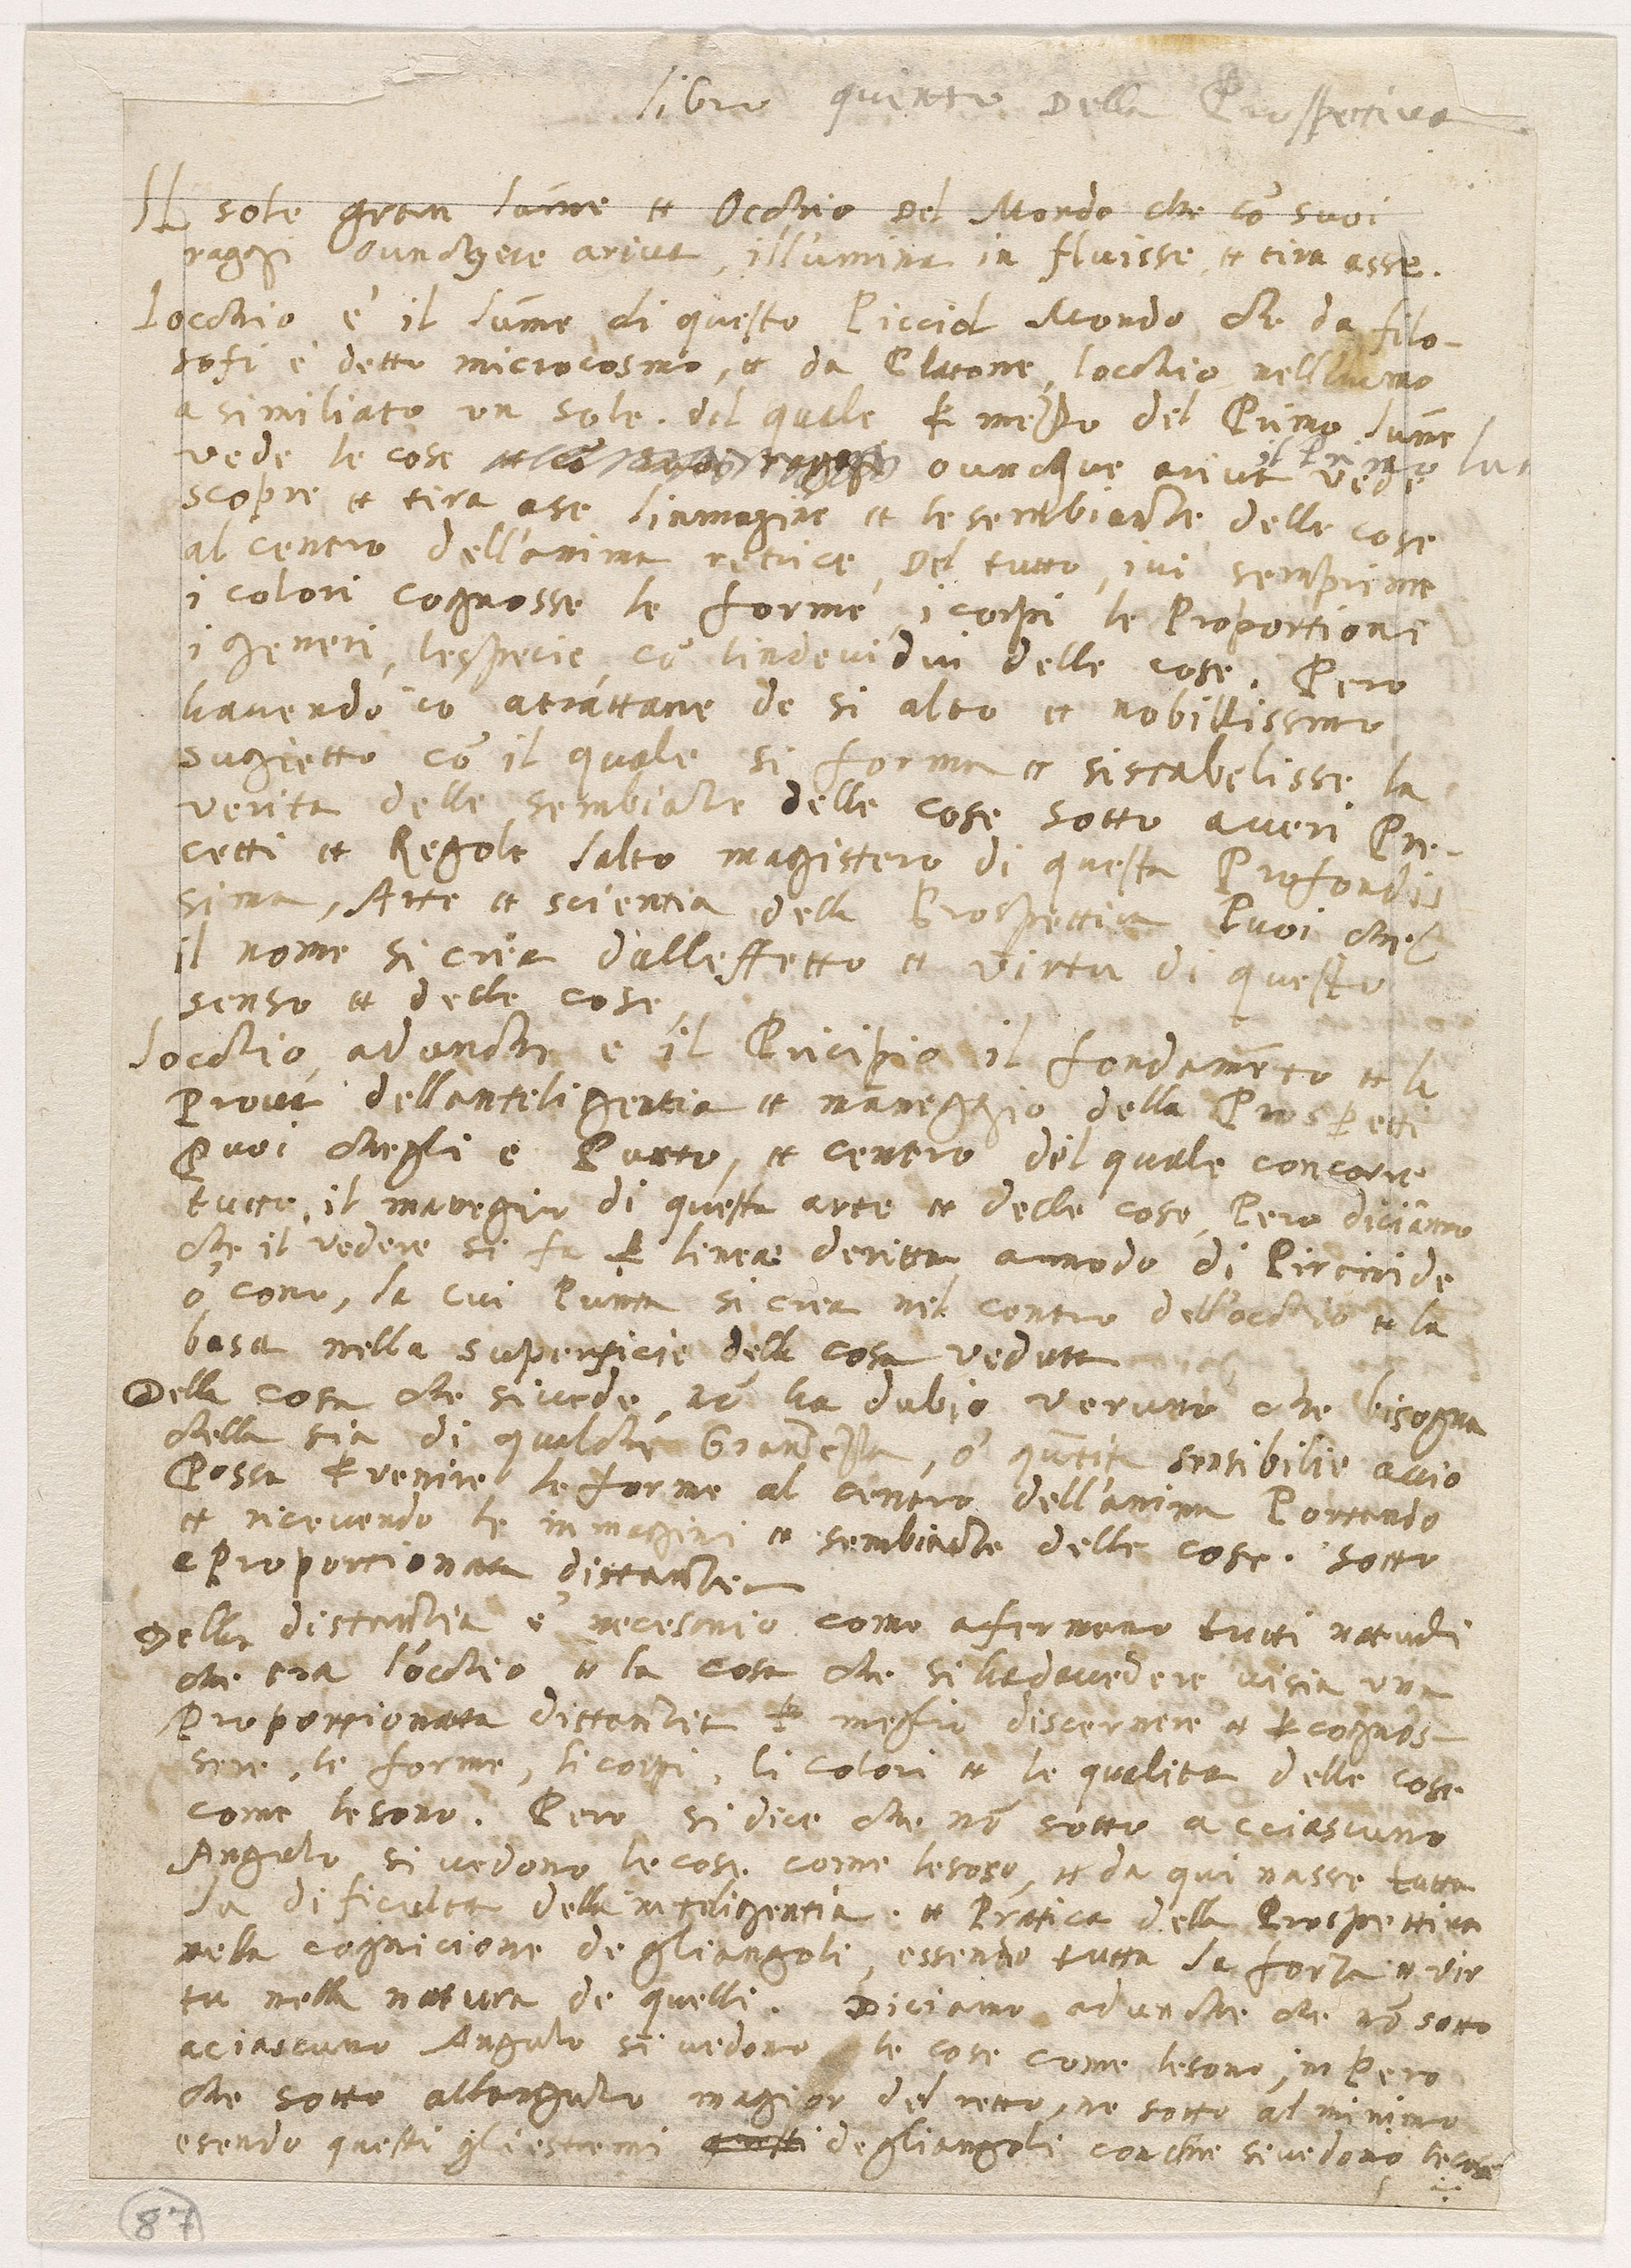 libro quinto Della Prospettiva
Il sole gran lume et Occhio Del Mondo che cõ suoi
raggi ounchꝫ ariva, illumina in fluisse, et tira asse.
locchio e' il lume di questo Picciol Mondo che da filo-
sofi e detto microcosmo, et da Platone, locchio nellhuomo
a similiato un sole. del quale ꝑ mezzo del Primo lume
vede le cose ounchue ariva vede
il Primo lu
scopre et tira ase limmagine et le sembiance delle cose
al centro dell'anima retrice, Del tutto, ivi semprime
i colori cognosse le forme, i corpi le Proportione
i generi, lespecie, cõ lindevidui delle cose. Pero
havendo io atrattare de si alto et nobillissimo
sugietto cõ il quale si forma et sistabelisse la
verita delle sembiance delle cose sotto averi Pre-
cetti et Regole lalto magistero di questa Profondis
sima, Arte et scientia della Prospettiva Puoi che
il nome si crea dalleffetto et virtu di questo
senso et delle cose,
locchio, adunche e il Pricipio il fondamẽto et la
Prova dellanteligentia et maneggio della Prospetti
Puoi chegli e Punto, et centro del quale concorre
tutto, il maneggio di questa arte et delle cose, Pero diciamo
che il vedere si fa ꝑ linea deritta, amodo di Piramide
o cono, la cui Punta si crea nel centro dell'occhio et la
basa nella superficie della cosa veduta
Della cosa che sivede, nõ ha dubio veruno che bisogna
chella sia di qualche Grandezza, o' qũtita sensibilie acio
Possa ꝑvenire le forme al centro dell'anima Portando
et ricevendo le inmagini et sembiance delle cose. sotto
a Proportionata distantia
Della distantia e' necesario come afermano tutti naturali
che tra l'occhio et la cosa che sihadavedere visia una
Proportionata distantia ꝑ meglio discernere et ꝑ cognos-
sere, le forme, li corpi, li colori et le qualita delle cose
come lesono. Pero si dice che nõ sotto acciascuno
Angulo si vedono le cose come lesono, et da qui nasse tutta
la dificulta della inteligentia. et Pratica della Prospettiva
nella cognicione degliangoli, essendo tutta la forza et vir
tu nella natura de quelli. Diciamo adunche che nõ sotto
aciascuno Angulo si vedono le cose come lesono, inpero
che sotto allangulo magior del retto, ne sotto al minimo
esendo questi gliestremi degliangoli conche sivedono lecose
87